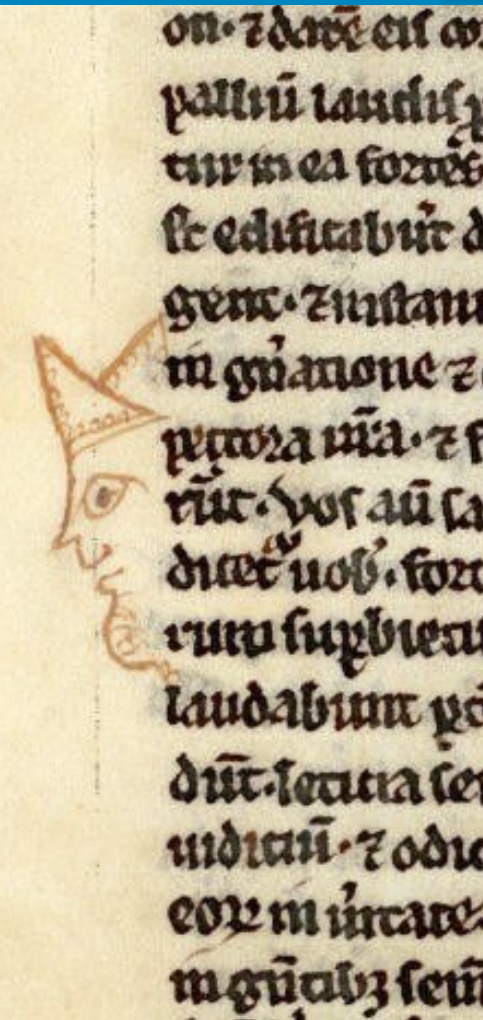 on· ⁊ darē eis co
palliū laudis p̱
tur in ea fortes
st edificabūt d
gent· ⁊ instau
in gn̄atione ⁊
peccora ur̄a· ⁊ f
rūt· Vos aū sa
dicet̄ uob̄· fort
rum suꝑbietu
laudabunt ꝑt̄
dūt· leticia se
iudiciū· ⁊ odio
eoꝝ in ūitate
in gn̄tibꝫ sem̄